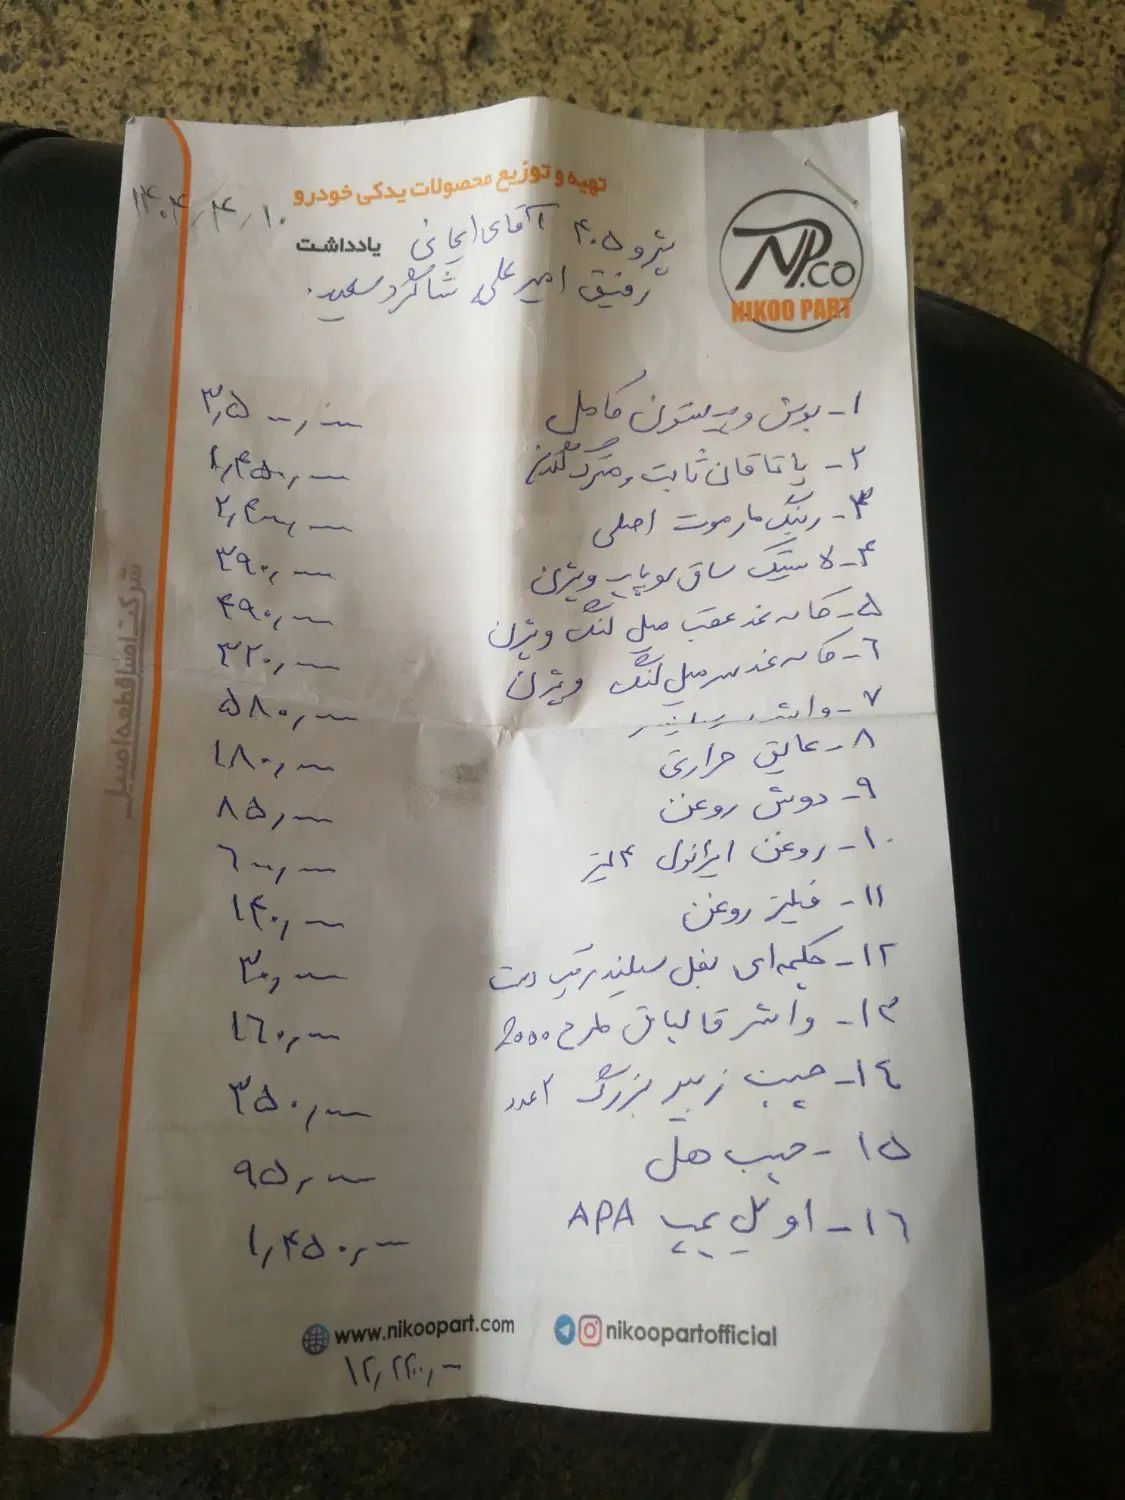 تهیه و توزیع محصولات یدکی خودرو
NP.CO
NIKOO PART
۱۴۰۴/۴/۱۰
یادداشت
پژو ۴۰۵ آقای ایمانی
رفیق امیرعلی شاگرد سعید.
۱- بوش و پیستون کامل ۳,۵۰۰,۰۰۰
۲- یاتاقان ثابت و متحرک ۱,۴۵۰,۰۰۰
۳- رینگ مارموت اصلی ۲,۴۰۰,۰۰۰
۴- لاستیک ساق سوپاپ ویژن ۳۹۰,۰۰۰
۵- کاسه نمد عقب میل لنگ ویژن ۴۹۰,۰۰۰
۶- کاسه نمد سر میل لنگ ویژن ۳۲۰,۰۰۰
۷- واشر سرسیلندر ۵۸۰,۰۰۰
۸- عایق حرارتی ۱۸۰,۰۰۰
۹- دوش روغن ۸۵,۰۰۰
۱۰- روغن ایرانول ۴ لیتر ۶۰۰,۰۰۰
۱۱- فیلتر روغن ۱۴۰,۰۰۰
۱۲- چکمه‌ای بغل سیلندر ۳۰,۰۰۰
۱۳- واشر قالپاق طرح 2000 ۱۶۰,۰۰۰
۱۴- چسب زبیر بزرگ ۲ عدد ۳۵۰,۰۰۰
۱۵- چسب هل ۹۵,۰۰۰
۱۶- اویل پمپ APA ۱,۴۵۰,۰۰۰
شرکت امیتاز قطعه امیل
www.nikoopart.com
nikoopartofficial
۱۲,۲۲۰,۰۰۰